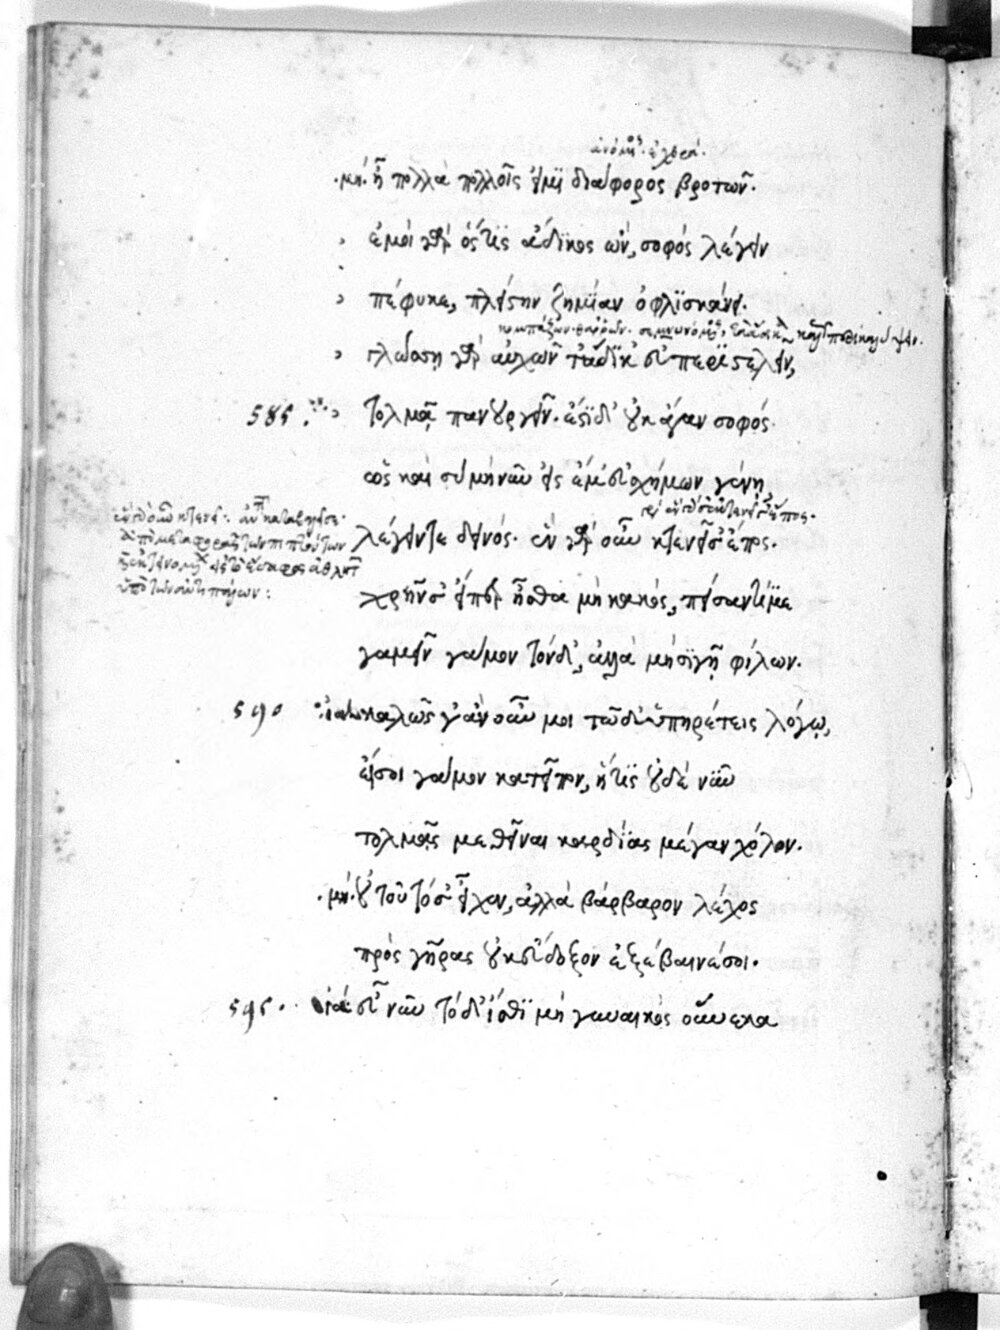 μή. ἦ πολλὰ πολλοῖς εἰμὶ διάφορος βροτῶν.
ἐμοὶ γὰρ ὅστις ἄδικος ὢν, σοφὸς λέγειν
πέφυκε, πλείστην ζημίαν ὀφλισκάνει.
γλώσσῃ γὰρ αὐχῶν τἄδικ' εὖ περιστελεῖν,
585 τολμᾷ πανουργεῖν. ἔστι δ' οὐκ ἄγαν σοφός.
ὡς καὶ σὺ μὴ νῦν εἰς ἔμ' εὐσχήμων γένῃ
λέγειν τε δεινός. ἓν γὰρ οὖν κτενεῖ σ' ἔπος.
χρῆν σ' εἴπερ ἦσθα μὴ κακὸς, πείσαντά με
γαμεῖν γάμον τόνδ', ἀλλὰ μὴ σιγῇ φίλων.
590 ἰα καλῶς γ' ἂν οὖν μοι τῷδ' ὑπηρέτεις λόγῳ,
εἴ σοι γάμον κατεῖπον, ἥτις οὐδὲ νῦν
τολμᾷς μεθεῖναι καρδίας μέγαν χόλον.
μή. οὐ τοῦτό σ' εἶχεν, ἀλλὰ βάρβαρον λέχος
πρὸς γῆρας οὐκ εὔδοξον ἐξέβαινέ σοι.
595. ἰά εὖ νῦν τόδ' ἴσθι μὴ γυναικὸς οὕνεκα